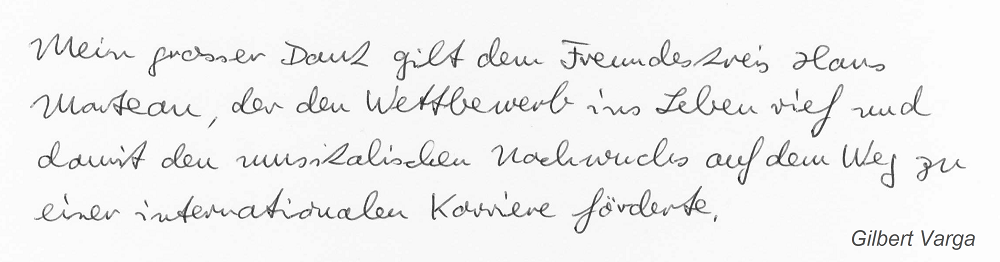 Mein grosser Dank gilt dem Freundeskreis Hans
Marteau, der den Wettbewerb ins Leben rief und
damit den musikalischen Nachwuchs auf dem Weg zu
einer internationalen Karriere förderte.
Gilbert Varga